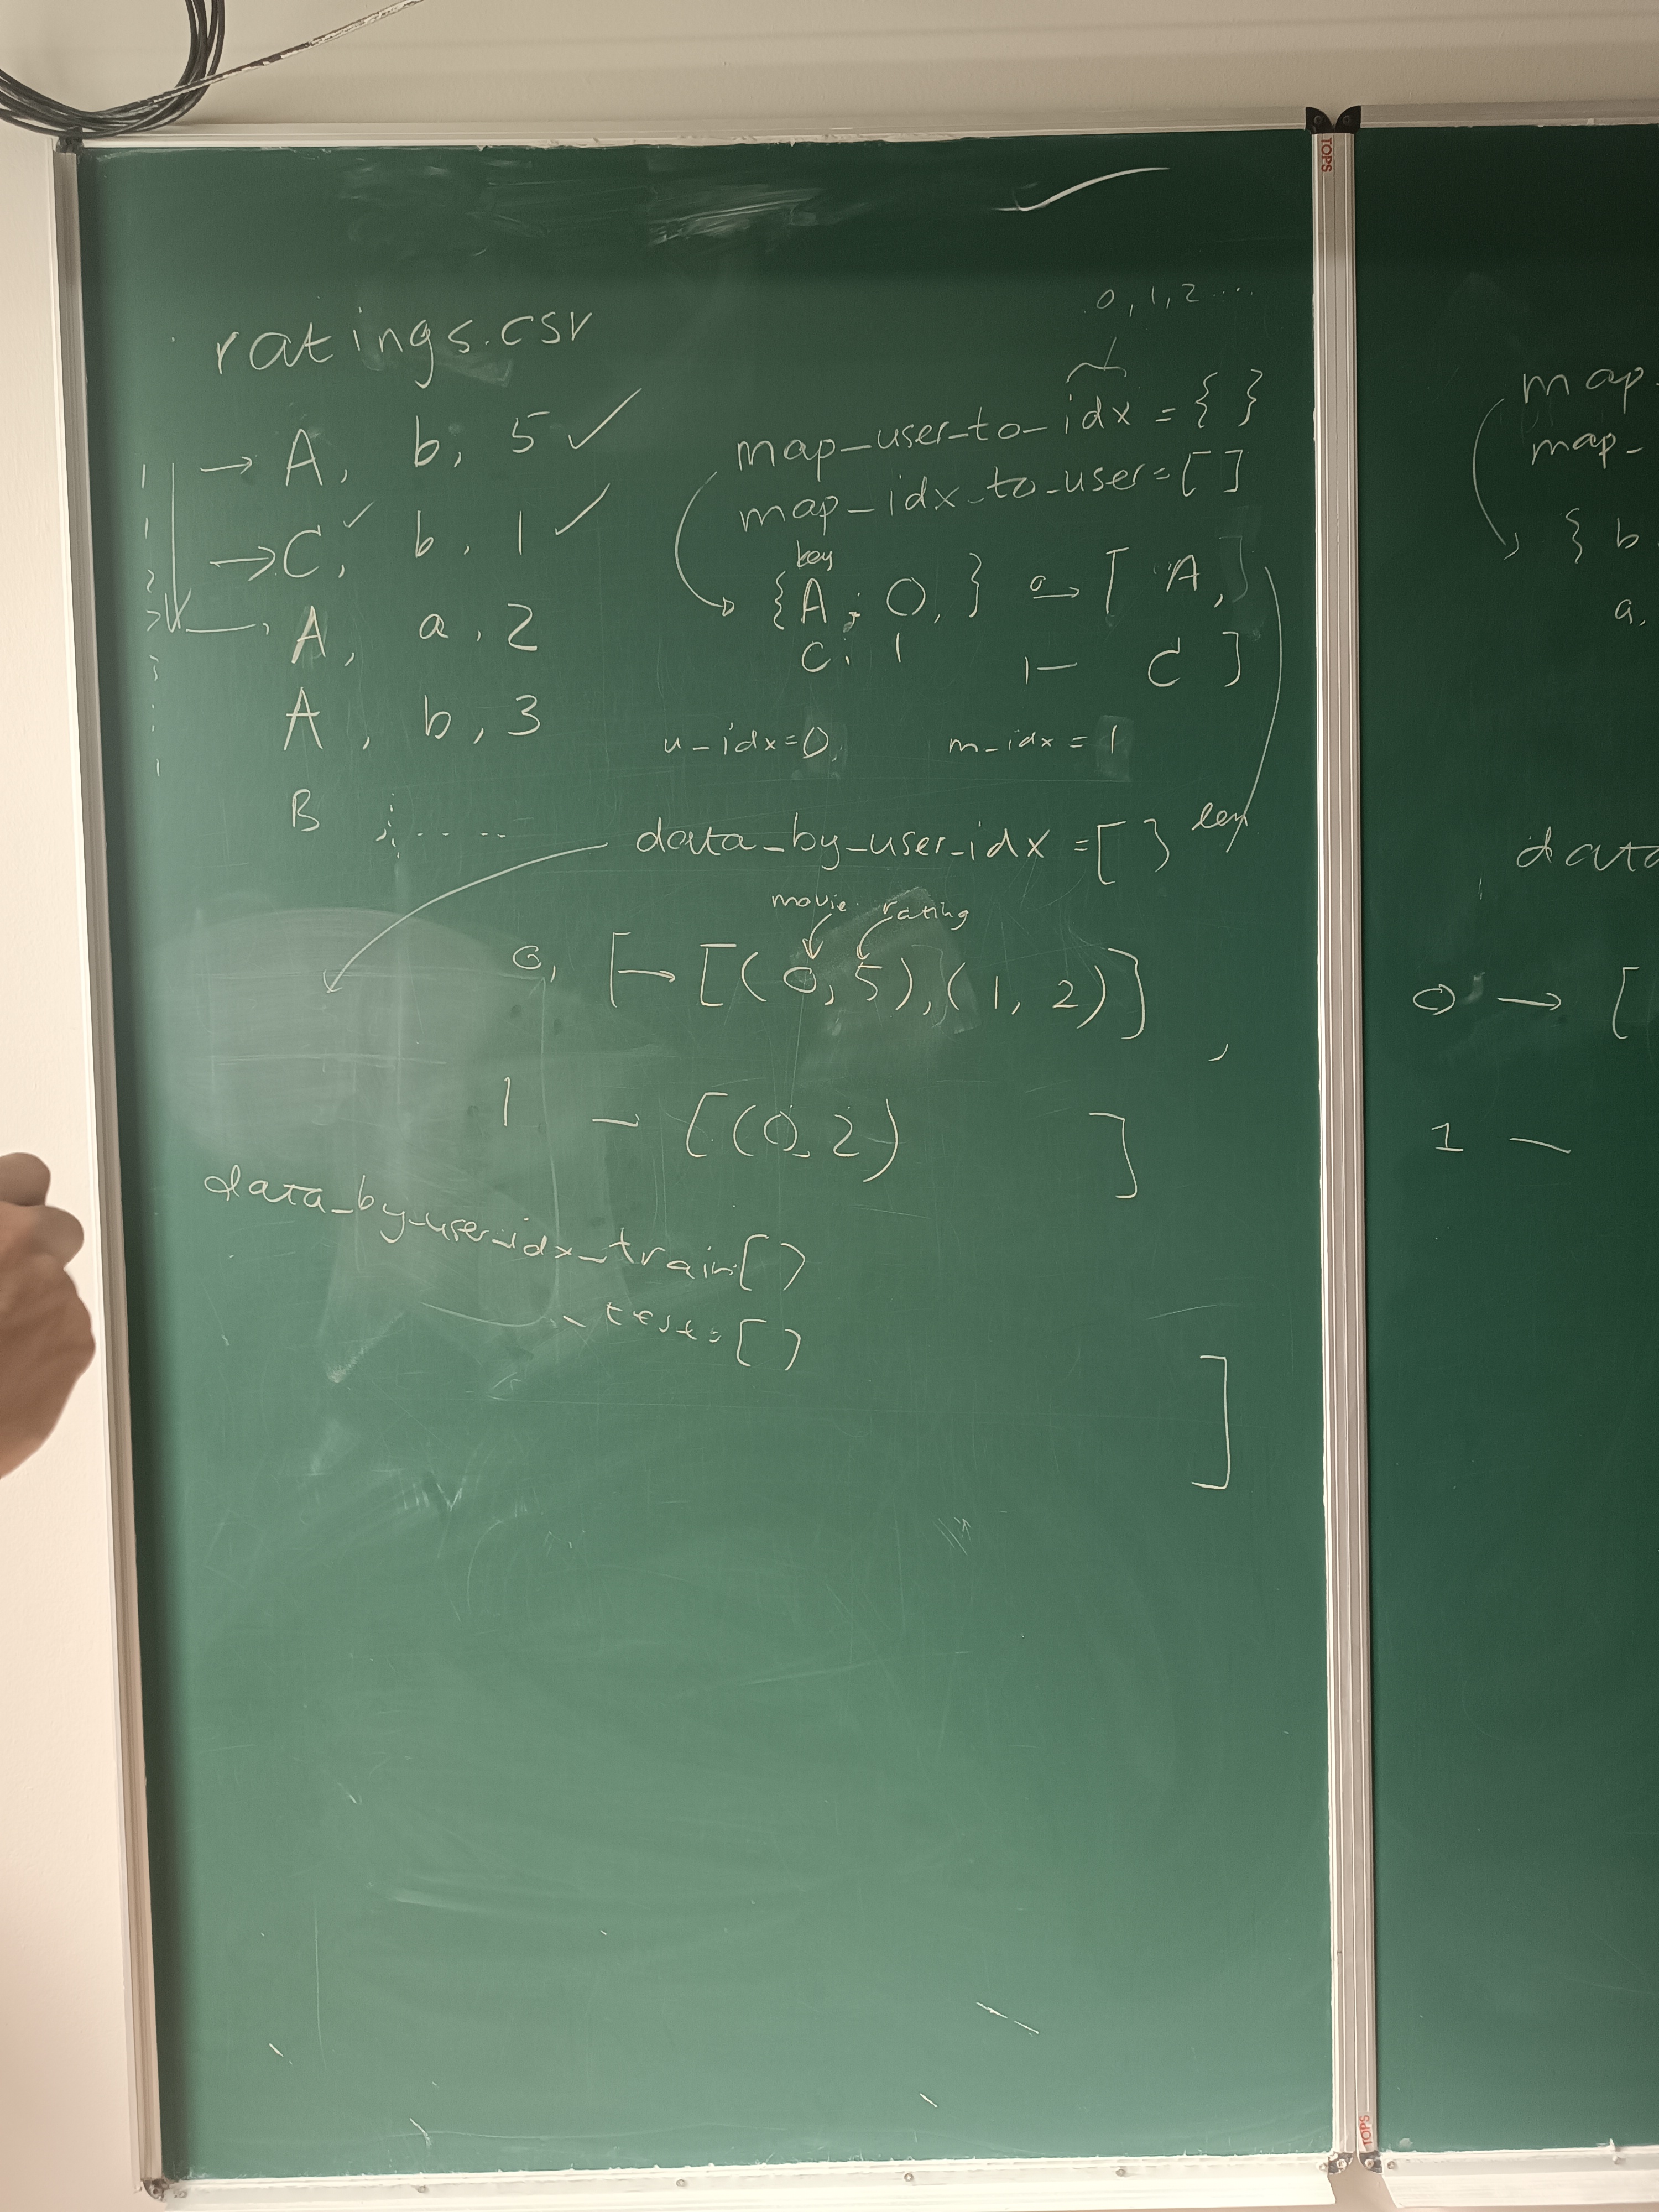 0, 1, 2 ...
ratings.csv
A, b, 5 ✓
C, ✓ b, 1 ✓
A, a, 2
A, b, 3
B
map_user_to_idx = { }
map_idx_to_user = [ ]
key
{A: 0, } 0 → [ A,
C: 1 1 — C ]
u_idx=0, m_idx = 1
data_by_user_idx = [ ] len
movie rating
0, [→ [(0, 5), (1, 2)]
,
1 – [(0, 2) ]
data_by_user_idx_train[ ]
_test= [ ]
]
map_
map-
{ b
a,
data
0 → [
1 —
TOPS
TOPS